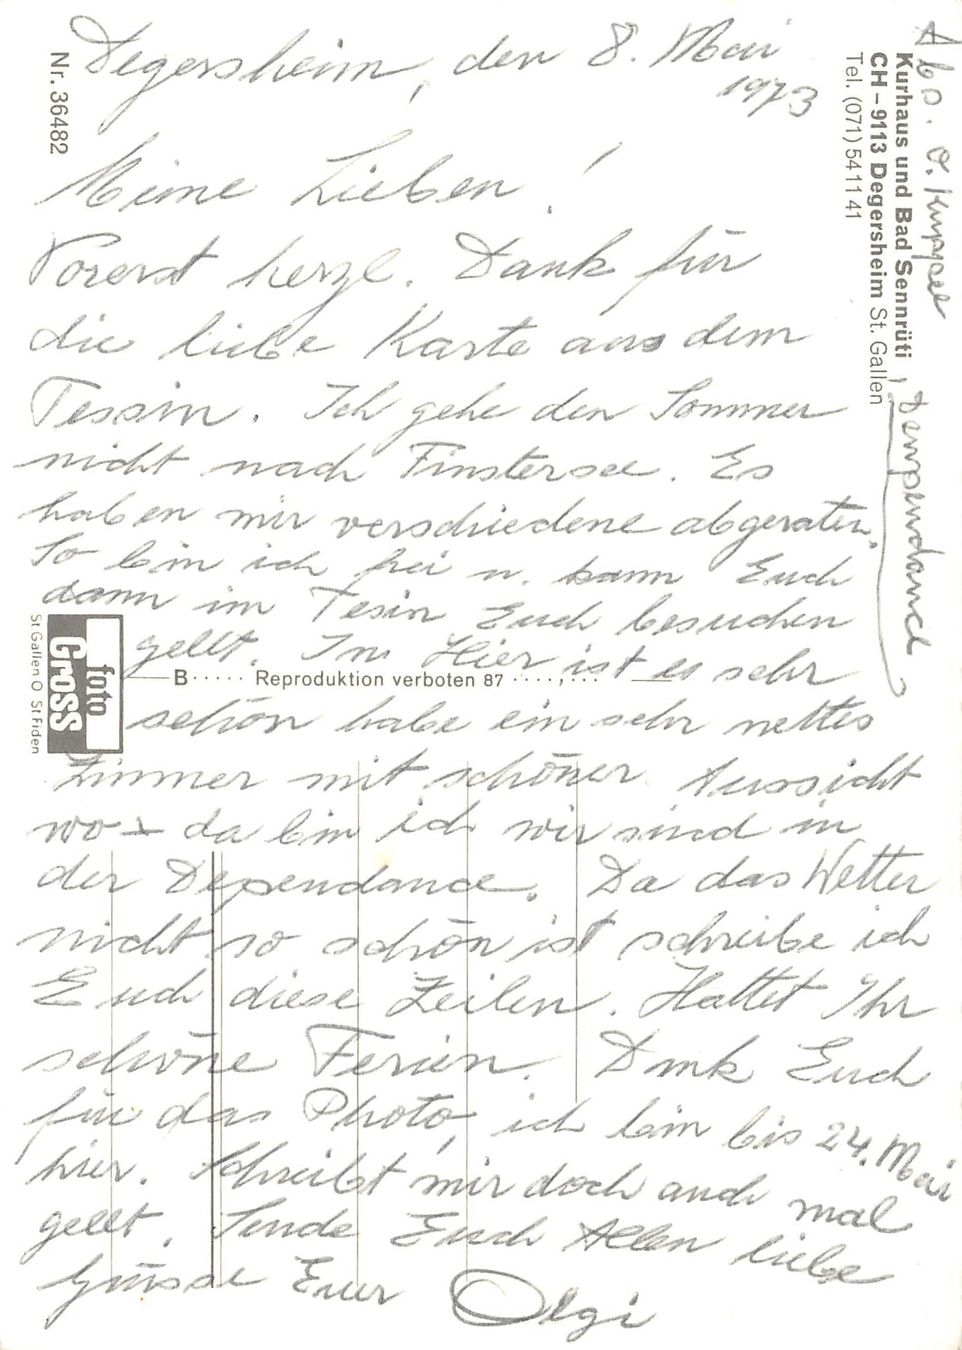 Degersheim, den 8. Mai
1973
Meine Lieben!
Vorerst herzl. Dank für
die liebe Karte aus dem
Tessin. Ich gehe den Sommer
nicht nach Finstersee. Es
haben mir verschiedene abgeraten.
So bin ich frei u. kann Euch
dann im Tesin Euch besuchen
gellt. Im Hier ist es sehr
schön habe ein sehr nettes
Zimmer mit schöner Aussicht
wo da bin ich wir sind in
der Dependance. Da das Wetter
nicht so schön ist schreibe ich
Euch diese Zeilen. Hattet Ihr
schöne Ferien. Dank Euch
für das Photo, ich bin bis 24. Mai
hier. Schreibt mir doch auch mal
gellt. Sende Euch Allen liebe
Grüsse Euer Olgi
Abs. O.
Kurhaus und Bad Sennrüti, Dempendance
CH – 9113 Degersheim St. Gallen
Tel. (071) 54 11 41
Nr. 36482
B ····· Reproduktion verboten 87
foto
Gross
St Gallen O St Fiden